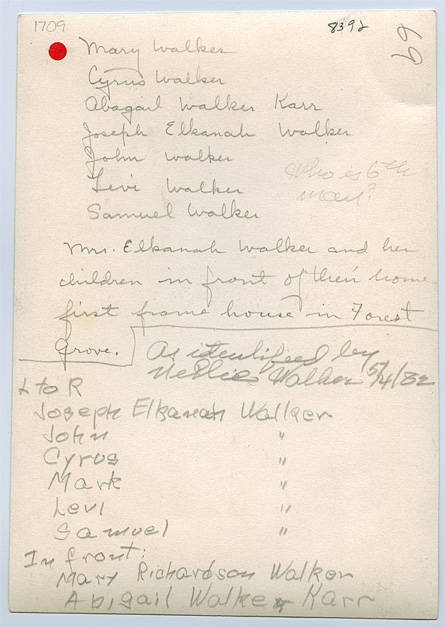 1709
8392
69
Mary Walker
Cyrus Walker
Abagail Walker Karr
Joseph Elkanah Walker
John Walker
Levi Walker
Samuel Walker
Who is 6th
man?
Mrs. Elkanah Walker and her
children in front of their home
first frame house in Forest
Grove.
As identified by
Nellie Walker 5/4/82
L to R
Joseph Elkanah Walker
John "
Cyrus "
Mark "
Levi "
Samuel "
In front:
Mary Richardson Walker
Abigail Walker Karr